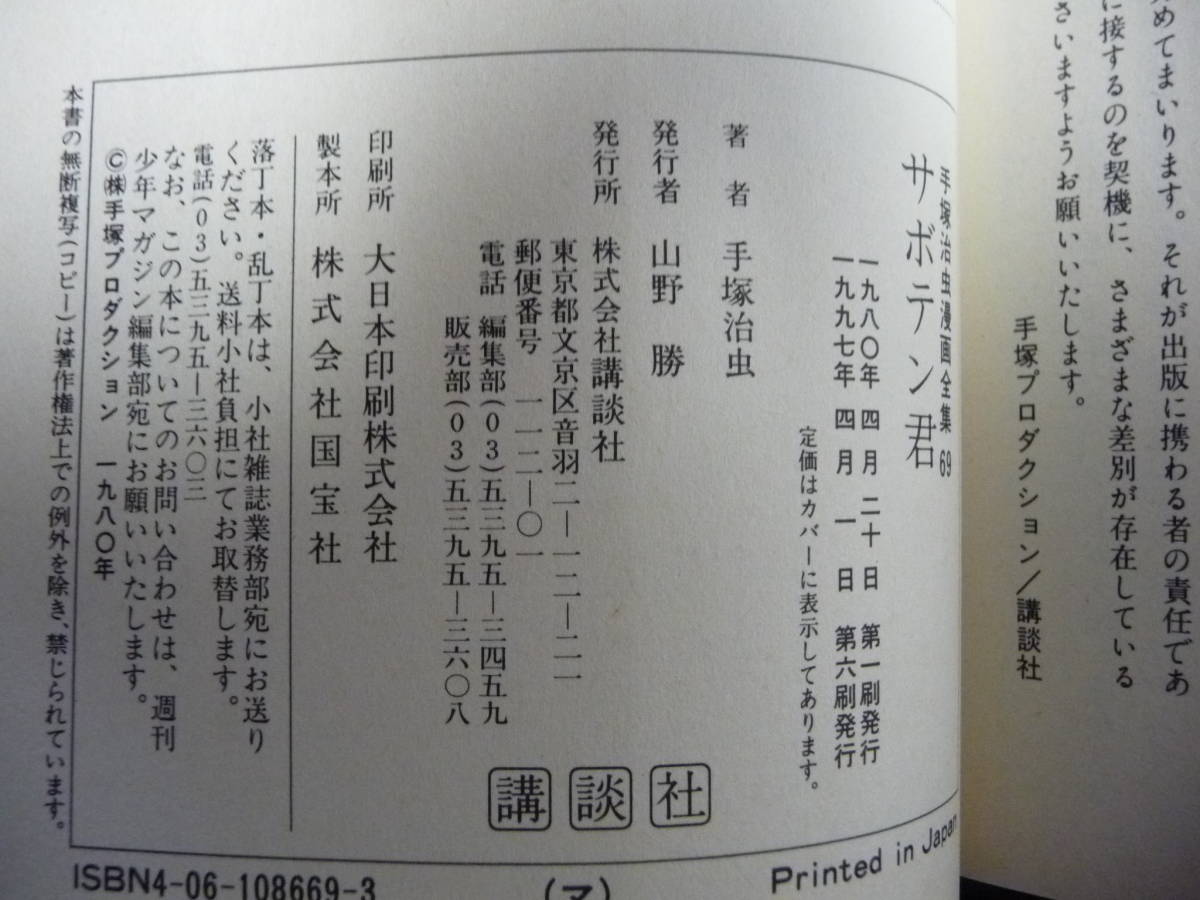 めてまいります。それが出版に携わる者の責任であ
に接するのを契機に、さまざまな差別が存在している
さいますようお願いいたします。
手塚プロダクション/講談社
手塚治虫漫画全集 69
サボテン君
一九八〇年 四月 二十日 第一刷発行
一九九七年 四月 一日 第六刷発行
定価はカバーに表示してあります。
著者 手塚治虫
発行者 山野 勝
発行所 株式会社講談社
東京都文京区音羽二—一二—二一
郵便番号 一一二—〇一
電話 編集部(03)五三九五—三四五九
販売部(03)五三九五—三六〇八
印刷所 大日本印刷株式会社
製本所 株式会社国宝社
落丁本・乱丁本は、小社雑誌業務部宛にお送り
ください。送料小社負担にてお取替します。
電話(03)五三九五—三六〇三
なお、この本についてのお問い合わせは、週刊
少年マガジン編集部宛にお願いいたします。
©㈱手塚プロダクション 一九八〇年
本書の無断複写(コピー)は著作権法上での例外を除き、禁じられています。
講談社
ISBN4-06-108669-3
(マ)
Printed in Japan